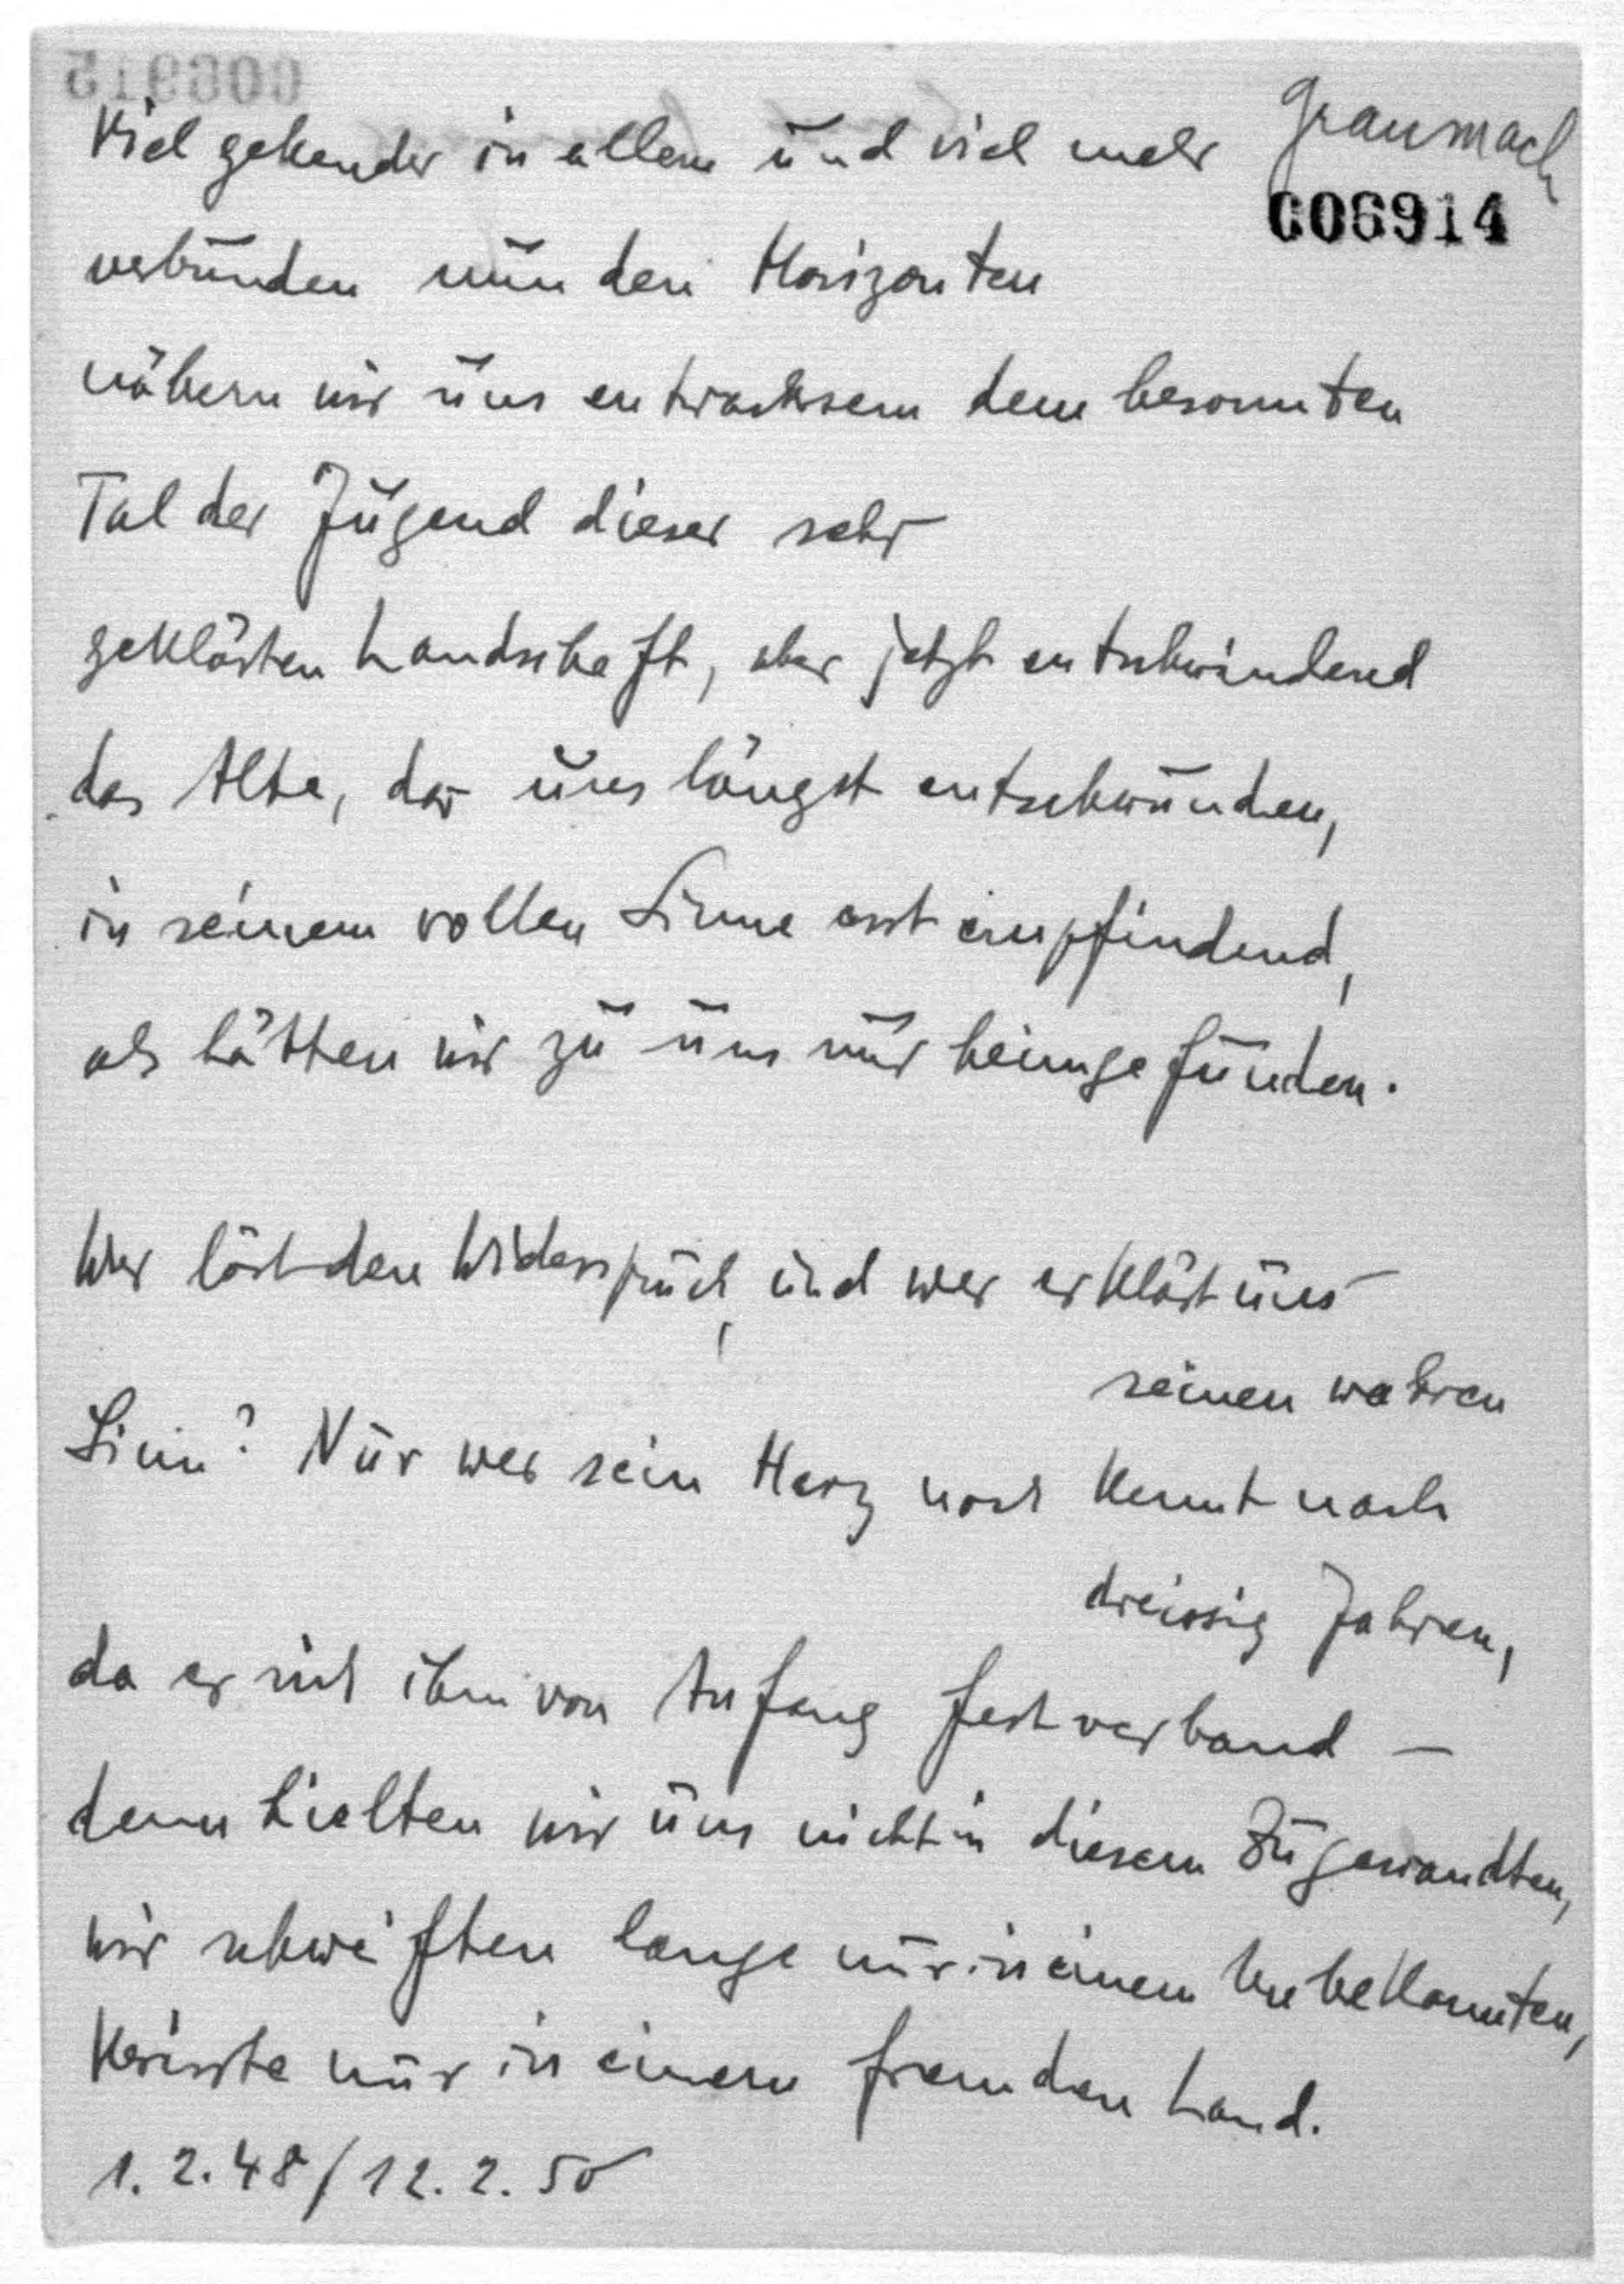 006915
Graumach
Viel gebender in allem und viel mehr
006914
verbunden nun den Horizonten
nähern wir uns entwachsem dem besonnten
Tal der Jugend dieser sehr
geklärten Landschaft, aber jetzt entschwindend
das Alte, das uns längst entschwunden,
in seinem vollen Sinne erst empfindend,
als hätten wir zu uns nur heimgefunden.
Wer löst den Widerspruch, und wer erklärt uns
seinen wahren
Sinn? Nur wer sein Herz noch kennt nach
dreissig Jahren,
da er sich ihm von Anfang fest verband –
denn hielten wir uns nicht in diesem Zugewandten,
wir schweiften lange nur in einem Unbekannten,
nur in einem fremden Land.
1.2.48/12.2.50